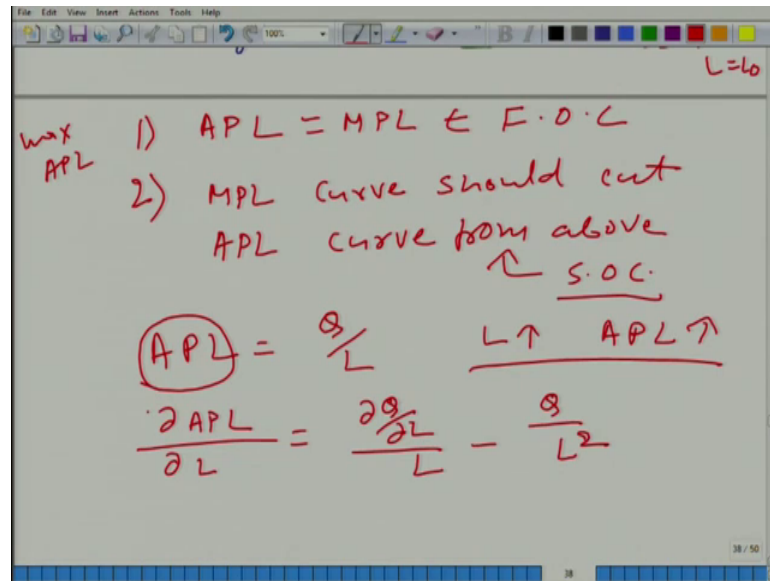 File Edit View Insert Actions Tools Help
100%
L=L0
max APL
1) APL = MPL ← F.O.C
2) MPL curve should cut
APL curve from above
↖ S.O.C.
APL = Q/L L↑ APL↑
∂APL/∂L = (∂Q/∂L)/L - Q/L²
38 / 50
38